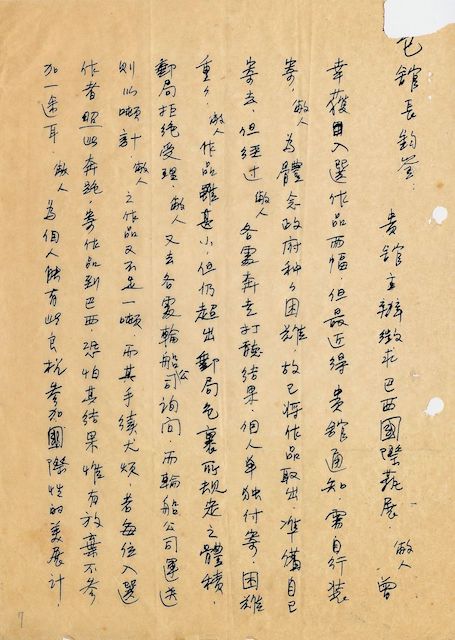 包館長鈞鑒：
貴館主辦徵求巴西國際藝展．敝人曾
幸獲入選作品兩幅．但最近得貴館通知．需自行裝
寄．敝人為體念政府種々困難．故已將作品取出．準備自己
寄去．但經過敝人各處奔走打聽結果．個人單独付寄．困難
重々．敝人作品雖甚小．但仍超出郵局包裹所規定之體積．
郵局拒絕受理．敝人又去各處輪船公司詢问．而輪船公司運送
則以噸計．敝人之作品又不足一噸．而其手續尤煩．者每位入選
作者照此奔跑．寄作品到巴西．恐怕其結果惟有放棄不參
加一途耳．敝人為個人能有此良机參加國際性的美展計．
7